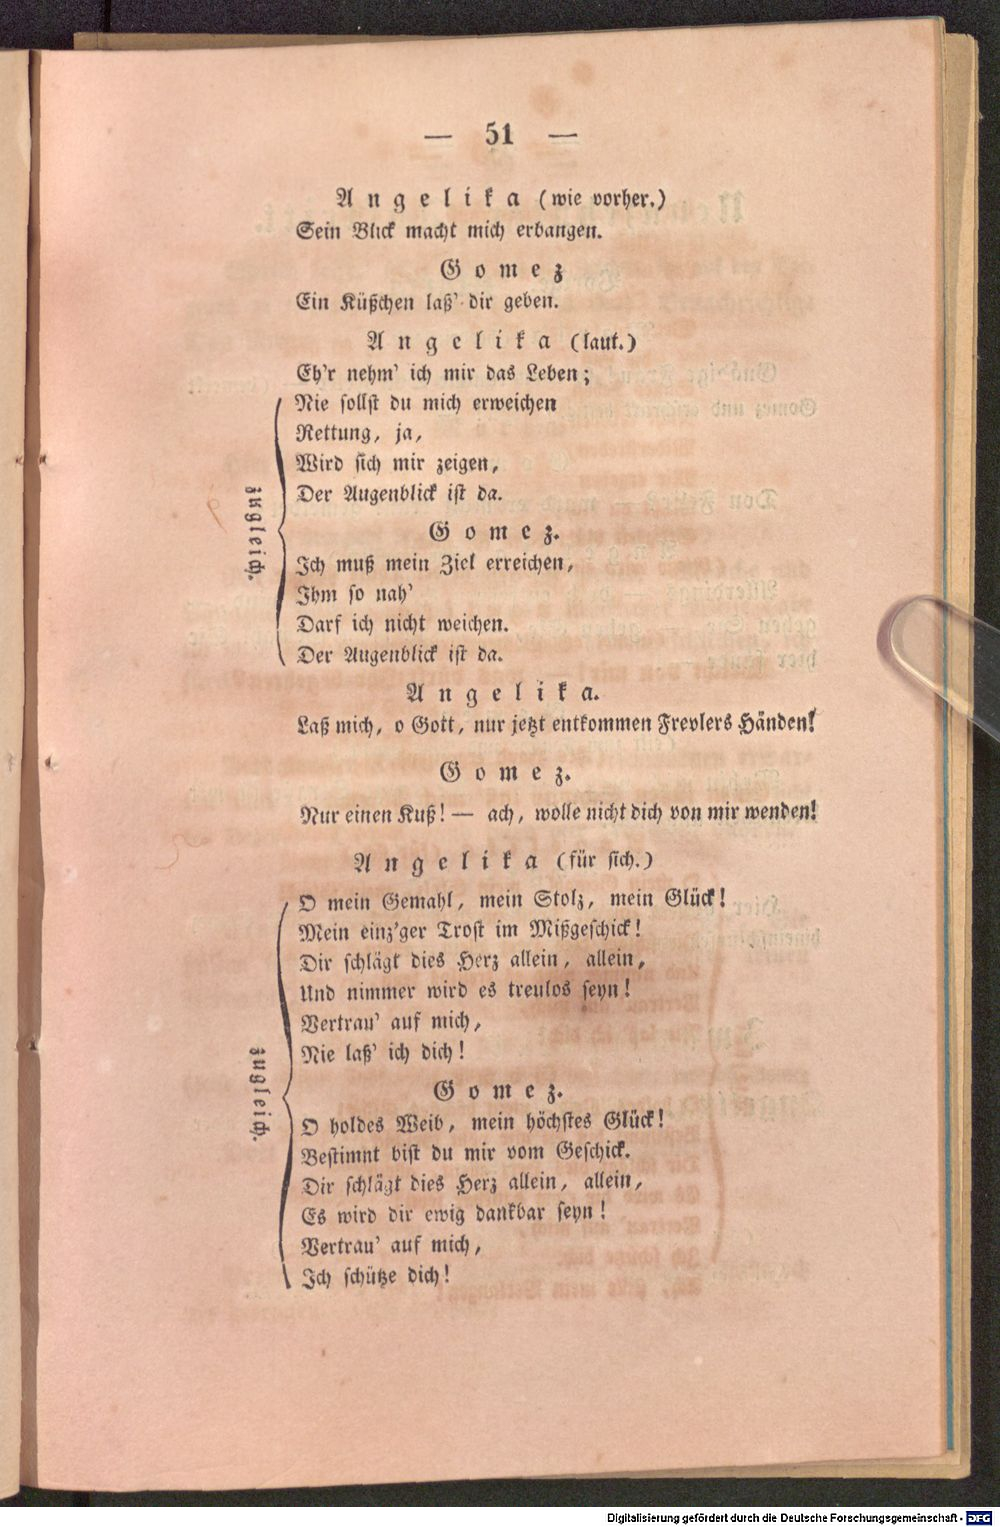 — 51 —
Angelika (wie vorher.)
Sein Blick macht mich erbangen.
Gomez
Ein Küßchen laß' dir geben.
Angelika (laut.)
Eh'r nehm' ich mir das Leben;
Nie sollst du mich erweichen
Rettung, ja,
Wird sich mir zeigen,
Der Augenblick ist da.
zugleich.
Gomez.
Ich muß mein Ziel erreichen,
Ihm so nah'
Darf ich nicht weichen.
Der Augenblick ist da.
Angelika.
Laß mich, o Gott, nur jetzt entkommen Frevlers Händen!
Gomez.
Nur einen Kuß! — ach, wolle nicht dich von mir wenden!
Angelika (für sich.)
O mein Gemahl, mein Stolz, mein Glück!
Mein einz'ger Trost im Mißgeschick!
Dir schlägt dies Herz allein, allein,
Und nimmer wird es treulos seyn!
Vertrau' auf mich,
Nie laß' ich dich!
zugleich.
Gomez.
O holdes Weib, mein höchstes Glück!
Bestimmt bist du mir vom Geschick.
Dir schlägt dies Herz allein, allein,
Es wird dir ewig dankbar seyn!
Vertrau' auf mich,
Ich schütze dich!
Digitalisierung gefördert durch die Deutsche Forschungsgemeinschaft - DFG